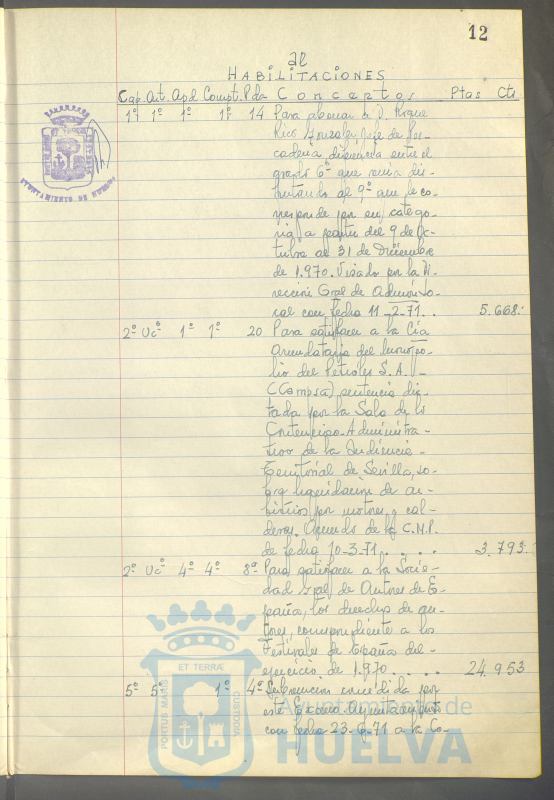 12
al
HABILITACIONES
Cap. Art. Apd. Compt. Pda Conceptos Ptas Cts
1º 1º 1º 1º 14 Para abonar a D. Roque
Rico Gonzalez, Jefe de Re-
caderia, diferencia entre el
grado 6º que venia dis-
frutando al 9º que le co-
rresponde por su catego-
ria, a partir del 9 de Oc-
tubre al 31 de Diciembre
de 1.970. Visado por la Di-
rección Gral de Admón Lo-
cal con fecha 11-2-71 . . 5.668.-
2º Ucº 1º 1º 20 Para satisfacer a la Cía
Arrendataria del Monopo-
lio del Petroleos S.A. -
(Campsa) sentencia dic-
tada por la Sala de lo
Contencioso-Administra-
tivo de la Audiencia
Territorial de Sevilla, so-
bre liquidación de ar-
bitrios por motores y cal-
deras. Acuerdo de la C.M.P.
de fecha 10-3-71 . . . . 3.793.-
2º Ucº 4º 4º 8º Para satisfacer a la Socie-
dad Gral de Autores de Es-
paña, los derechos de au-
tores, correspondiente a los
Festivales de España del
ejercicio de 1.970 . . . . 24.953
5º 5º 1º 4º Subvencion concedida por
este Excmo. Ayuntamiento
con fecha 23-6-71 a la Co-
AYUNTAMIENTO DE HUELVA
PORTUS MARIS ET TERRAE CUSTODIA
Ayuntamiento de
HUELVA